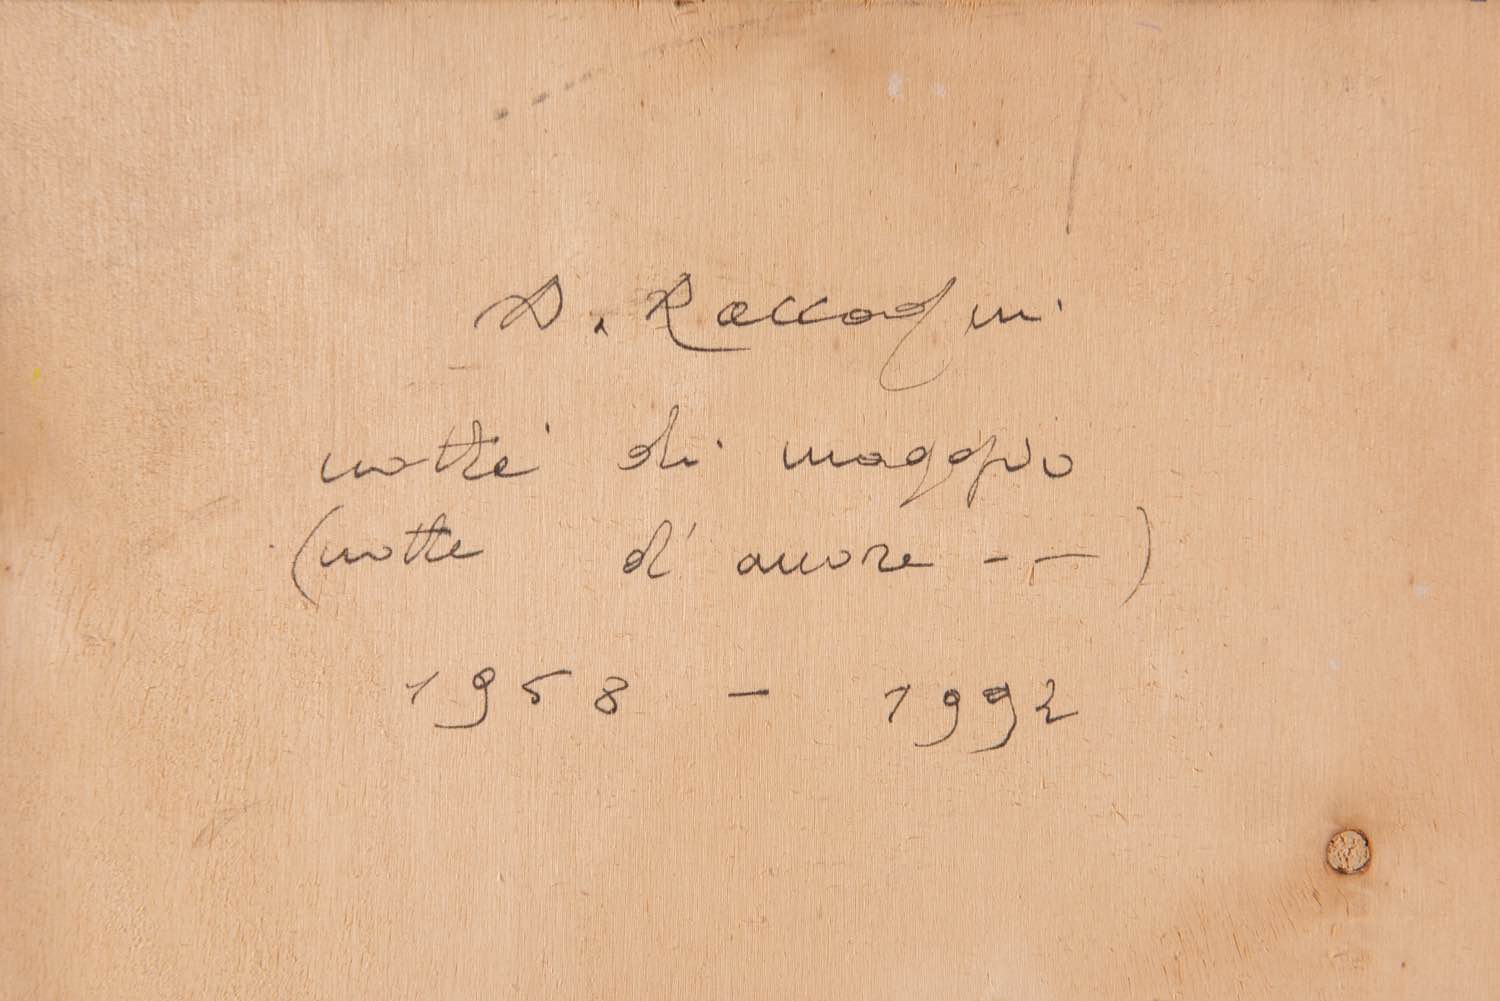 D. Raccagni
notte di maggio
(notte d'amore - —)
1958 - 1992